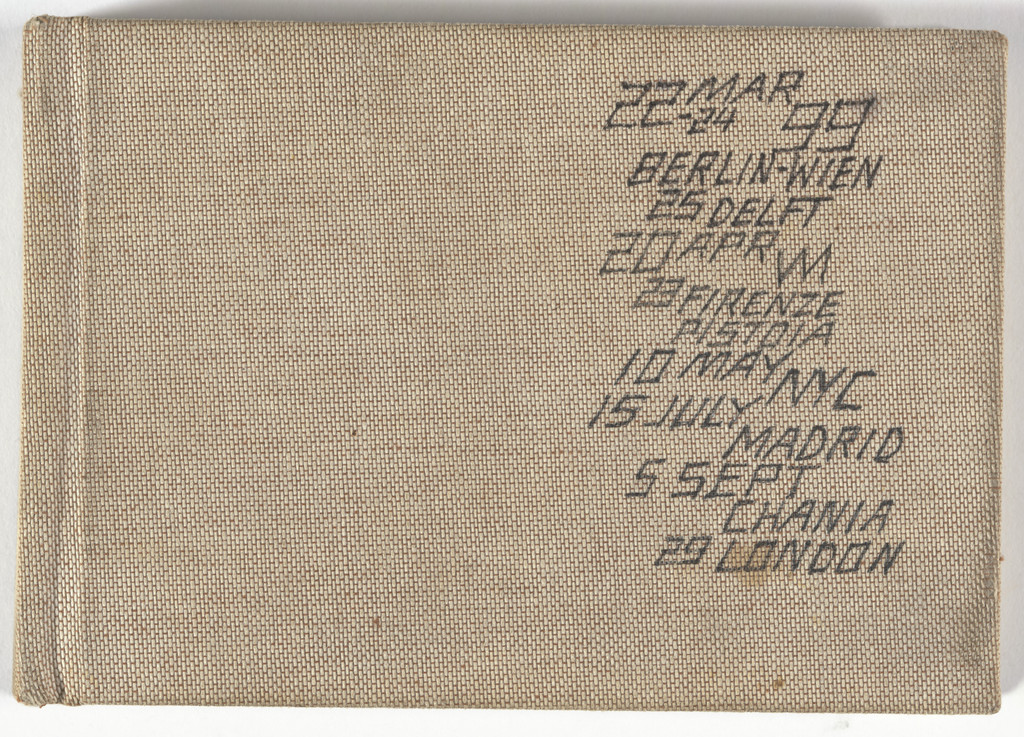 22 MAR
-24 99
BERLIN-WIEN
25 DELFT
20 APR VM
23 FIRENZE
PISTOIA
10 MAY NYC
15 JULY
MADRID
5 SEPT
CHANIA
29 LONDON